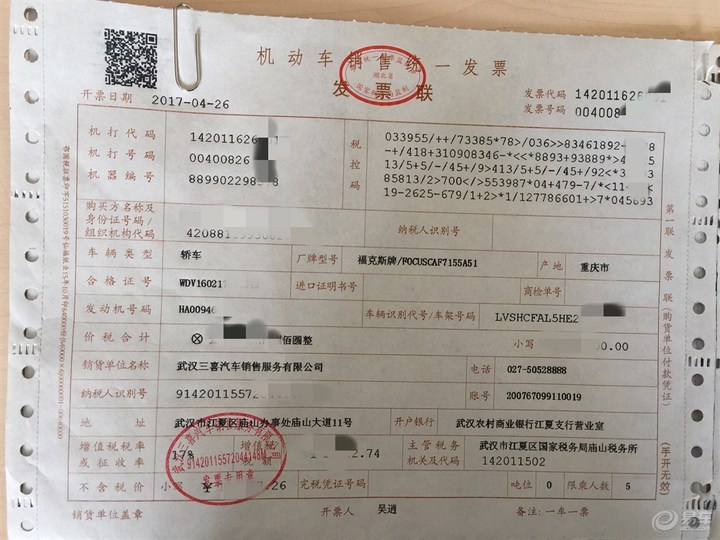 机动车销售统一发票
发票联
开票日期 2017-04-26
发票代码 142011626
发票号码 004008
机打代码 142011626
机打号码 00400826
机器编号 889902298
税控码
033955/++/73385*78>/036>>83461892-
-+/418+310908346-*<<*8893+93889*>4
13/5+5/-45+/9>413/5+5/-45+/92<*3
85813/2>700</>553987*04+479-7/*<11-
19-2625-679/1+2>*1/127786601+>7*045893
购买方名称及身份证号码/组织机构代码 420881
纳税人识别号
车辆类型 轿车 厂牌型号 福克斯牌/FOCUSCAF7155A51 产地 重庆市
合格证号 WDV16021 进口证明书号 商检单号
发动机号码 HA0094 车辆识别代号/车架号码 LVSHCFAL5HE2
价税合计 ⊗ 佰圆整 小写 0.00
销货单位名称 武汉三喜汽车销售服务有限公司 电话 027-50528888
纳税人识别号 9142011557 账号 200767099110019
地址 武汉市江夏区庙山办事处庙山大道11号 开户银行 武汉农村商业银行江夏支行营业室
增值税税率或征收率 17% 增值税税额 2.74 主管税务机关及代码 武汉市江夏区国家税务局庙山税务所 142011502
不含税价 小写 26 完税凭证号码 吨位 0 限乘人数 5
销货单位盖章 开票人 吴逍 备注：一车一票
第一联 发票联（购货单位付款凭证）
（手开无效）
发票专用章
易车